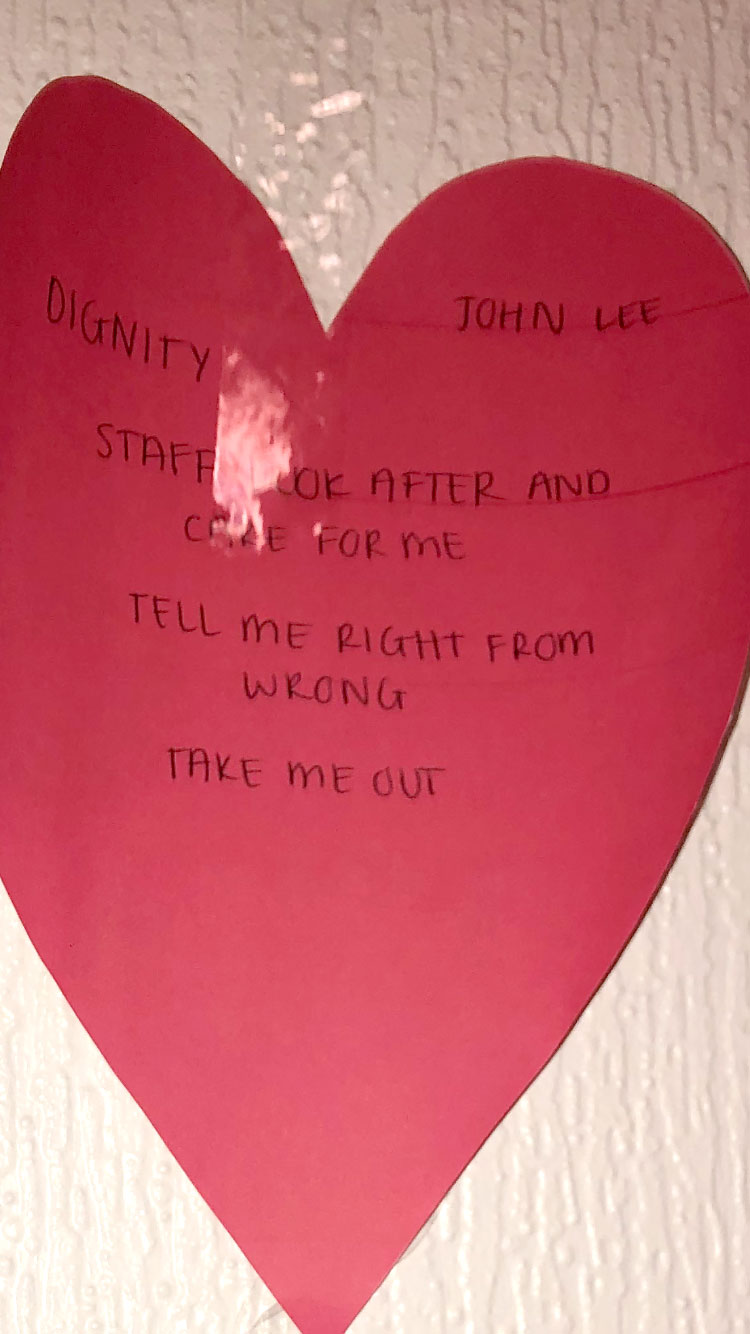 DIGNITY
JOHN LEE
STAFF LOOK AFTER AND
CARE FOR ME
TELL ME RIGHT FROM
WRONG
TAKE ME OUT